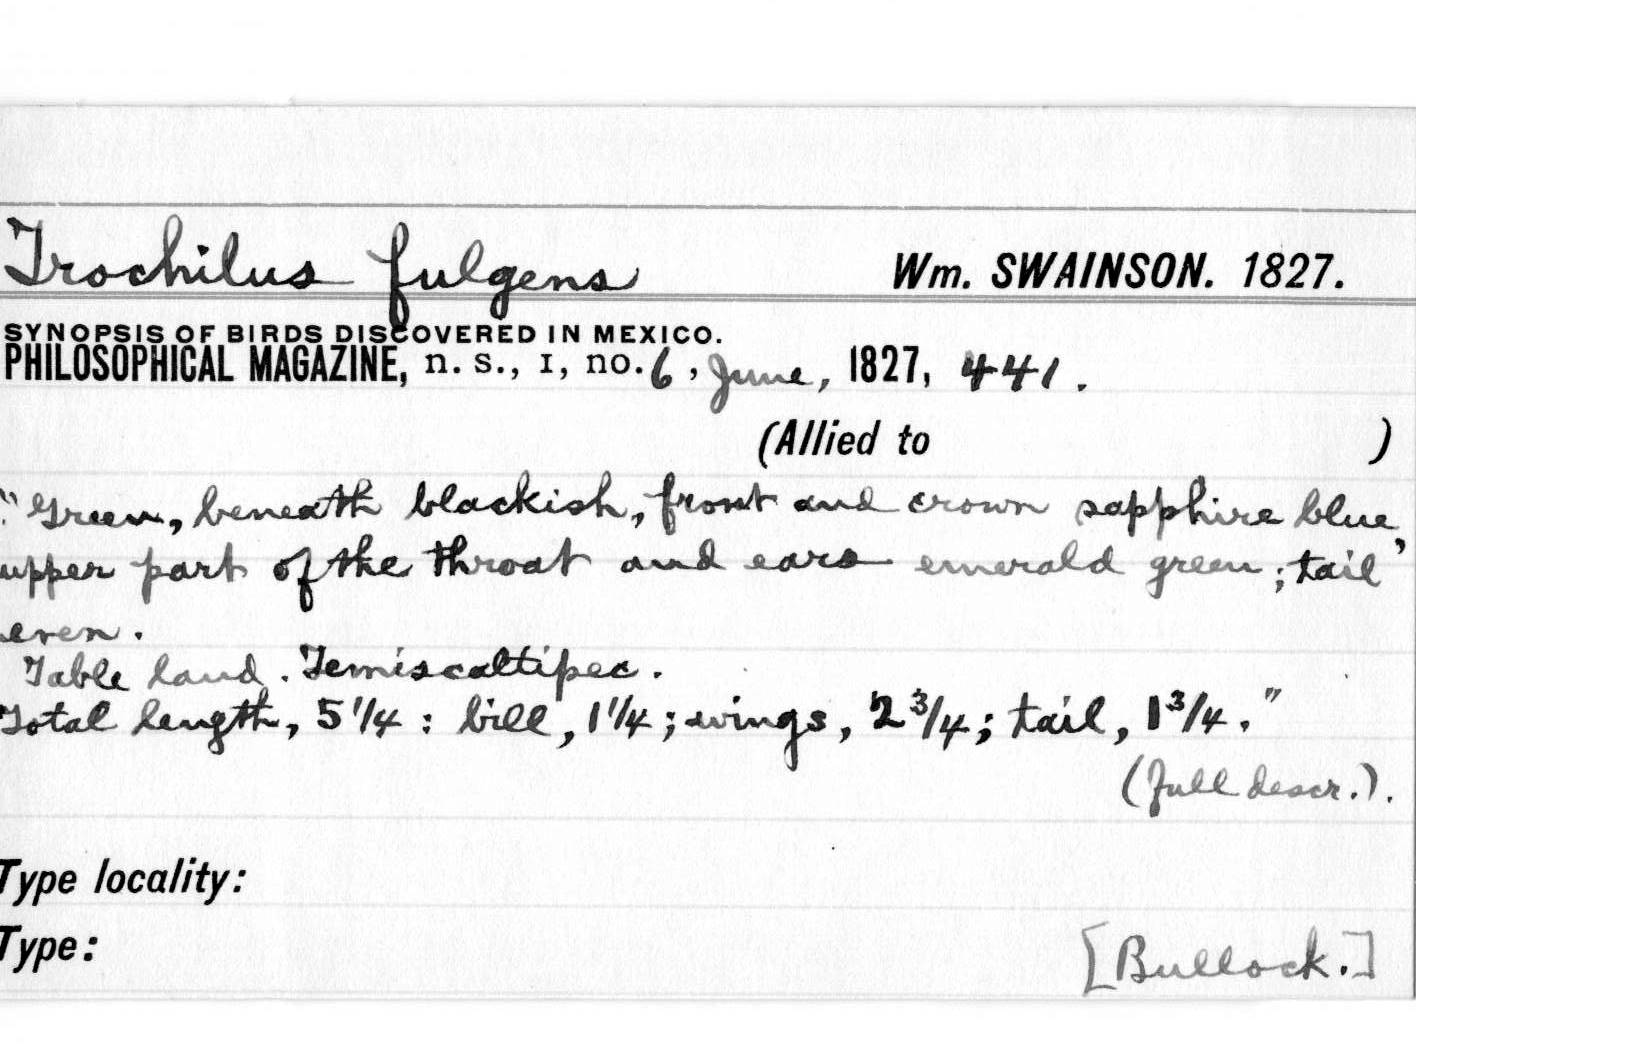 Trochilus fulgens Wm. SWAINSON. 1827.
SYNOPSIS OF BIRDS DISCOVERED IN MEXICO.
PHILOSOPHICAL MAGAZINE, n. s., I, no. 6, June, 1827, 441.
(Allied to )
"Green, beneath blackish, front and crown sapphire blue,
upper part of the throat and ears emerald green; tail
even.
Table land. Temiscaltipec.
Total length, 5 1/4: bill, 1 1/4; wings, 2 3/4; tail, 1 3/4."
(full descr.).
Type locality:
Type: [Bullock.]